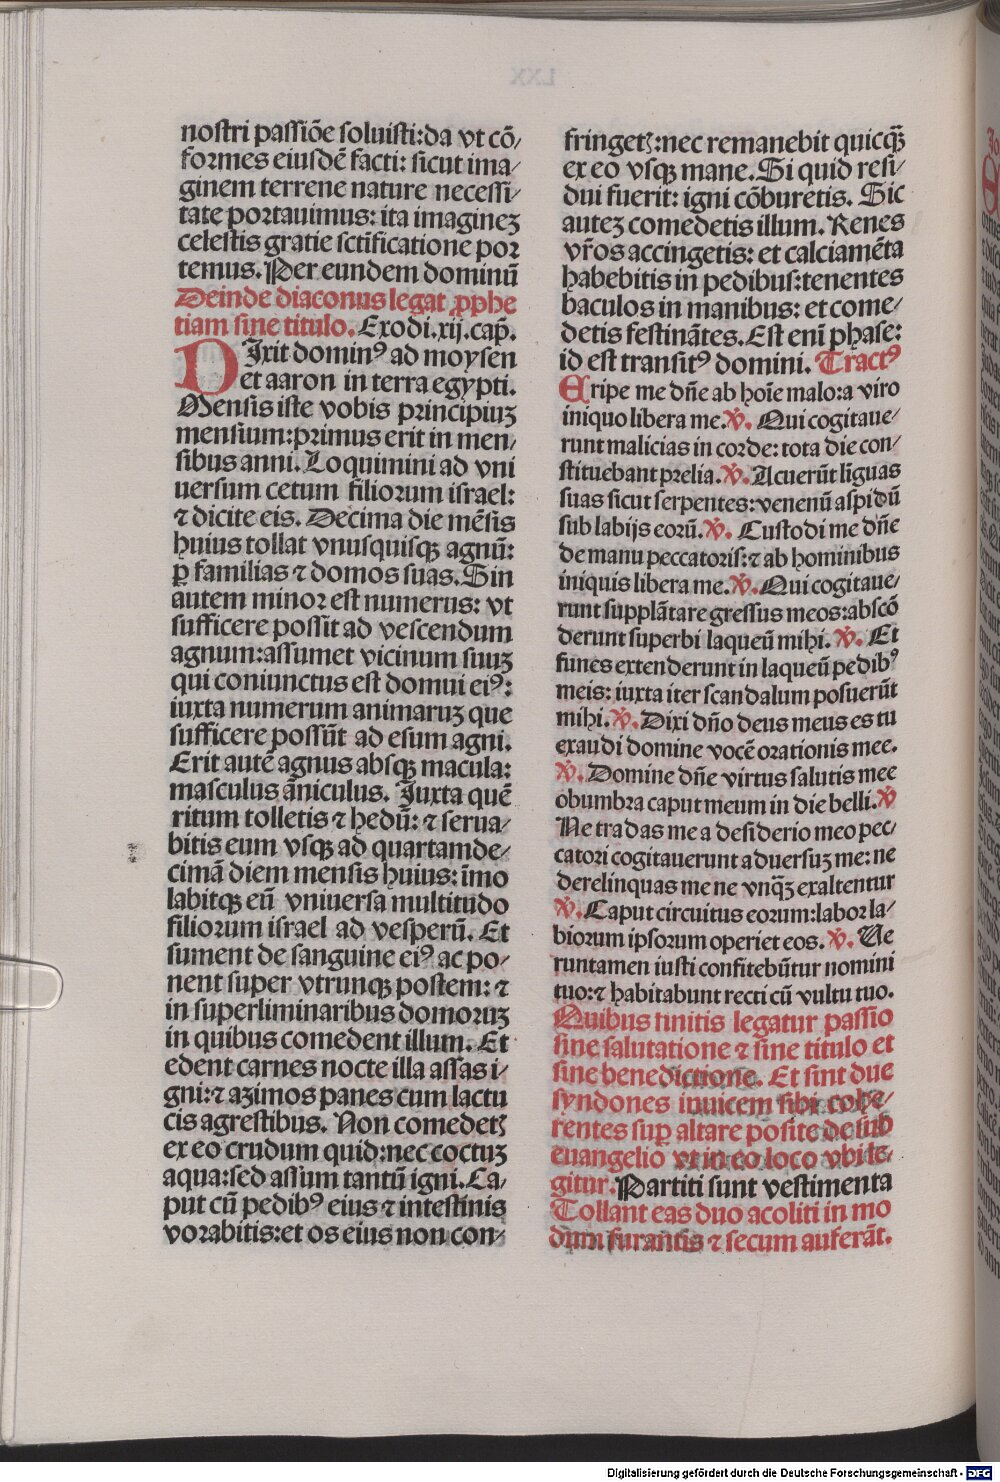 nostri passiõe soluisti:da vt cõ/
formes eiusdẽ facti: sicut ima/
ginem terrene nature necessi/
tate portauimus: ita imaginez
celestis gratie sctificatione por
temus. Per eundem dominū
Deinde diaconus legat ꝓphe
tiam sine titulo. Exodi.xij.cap̄.
DIxit dominꝰ ad moysen
et aaron in terra egypti.
Mensis iste vobis principiuz
mensium:primus erit in men/
sibus anni. Loquimini ad vni
uersum cetum filiorum israel:
⁊ dicite eis. Decima die mēsis
huius tollat vnusquisqꝫ agnū:
ꝑ familias ⁊ domos suas. Sin
autem minor est numerus: vt
sufficere possit ad vescendum
agnum:assumet vicinum suuz
qui coniunctus est domui eiꝰ:
iuxta numerum animaruz que
sufficere possūt ad esum agni.
Erit autē agnus absqꝫ macula:
masculus āniculus. Iuxta quē
ritum tolletis ⁊ hedū: ⁊ serua/
bitis eum vsqꝫ ad quartamde/
cimā diem mensis huius: īmo
labitqꝫ eū vniuersa multitudo
filiorum israel ad vesperū. Et
sument de sanguine eiꝰ ac po/
nent super vtrunqꝫ postem: ⁊
in superliminaribus domoruz
in quibus comedent illum. Et
edent carnes nocte illa assas i/
gni:⁊ azimos panes cum lactu
cis agrestibus. Non comedetꝫ
ex eo crudum quid:nec coctuz
aqua:sed assum tantū igni. Ca/
put cū pedibꝰ eius ⁊ intestinis
vorabitis:et os eius non con/
fringetꝫ:nec remanebit quicqꝫ̄
ex eo vsqꝫ mane. Si quid resi/
dui fuerit: igni cōburetis. Sic
autez comedetis illum. Renes
vr̄os accingetis: et calciamēta
habebitis in pedibus:tenentes
baculos in manibus: et come/
detis festinātes. Est eni phase:
id est transitꝰ domini. Tractꝰ
Eripe me dn̄e ab hoīe malo:a viro
iniquo libera me. ℣. Qui cogitaue/
runt malicias in corde: tota die con/
stituebant prelia. ℣. Acuerūt līguas
suas sicut serpentes: venenū aspidū
sub labijs eorū. ℣. Custodi me dn̄e
de manu peccatoris:⁊ ab hominibus
iniquis libera me. ℣. Qui cogitaue/
runt supplātare gressus meos:abscō
derunt superbi laqueū mihi. ℣. Et
funes extenderunt in laqueū pedibꝰ
meis: iuxta iter scandalum posuerūt
mihi. ℣. Dixi dn̄o deus meus es tu
exaudi domine vocē orationis mee.
℣. Domine dn̄e virtus salutis mee
obumbra caput meum in die belli. ℣
Ne tradas me a desiderio meo pec/
catori cogitauerunt aduersuz me: ne
derelinquas me ne vnqꝫ̄ exaltentur
℣. Caput circuitus eorum:labor la/
biorum ipsorum operiet eos. ℣. Ue
runtamen iusti confitebūtur nomini
tuo:⁊ habitabunt recti cū vultu tuo.
Quibus finitis legatur passio
sine salutatione ⁊ sine titulo et
sine benedictione. Et sint due
syndones inuicem sibi cohe/
rentes suꝑ altare posite de sub
euangelio vt in eo loco vbi le/
gitur. Partiti sunt vestimenta
Tollant eas duo acoliti in mo
dum furantis ⁊ secum auferāt.
Digitalisierung gefördert durch die Deutsche Forschungsgemeinschaft - DFG